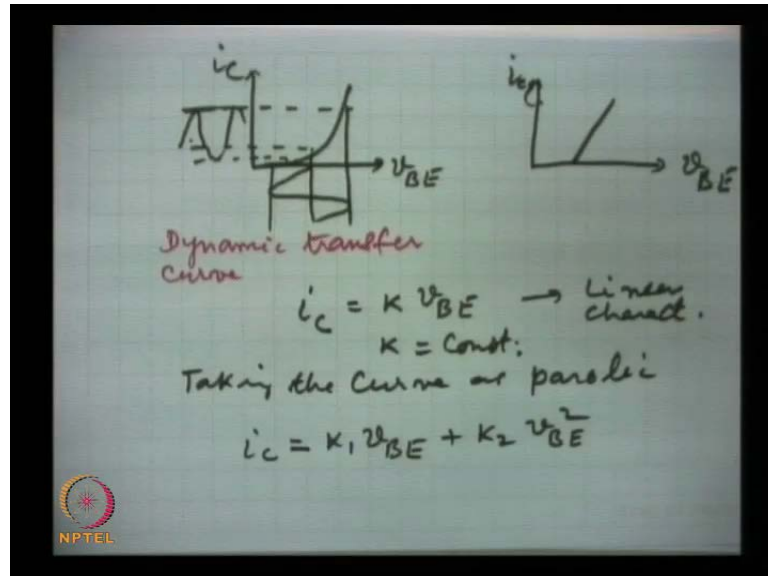 i_C
i_C
v_BE
v_BE
Dynamic transfer
curve
i_C = K v_BE → Linear
charact.
K = Const:
Taking the Curve as parolic
i_C = K_1 v_BE + K_2 v_BE^2
NPTEL